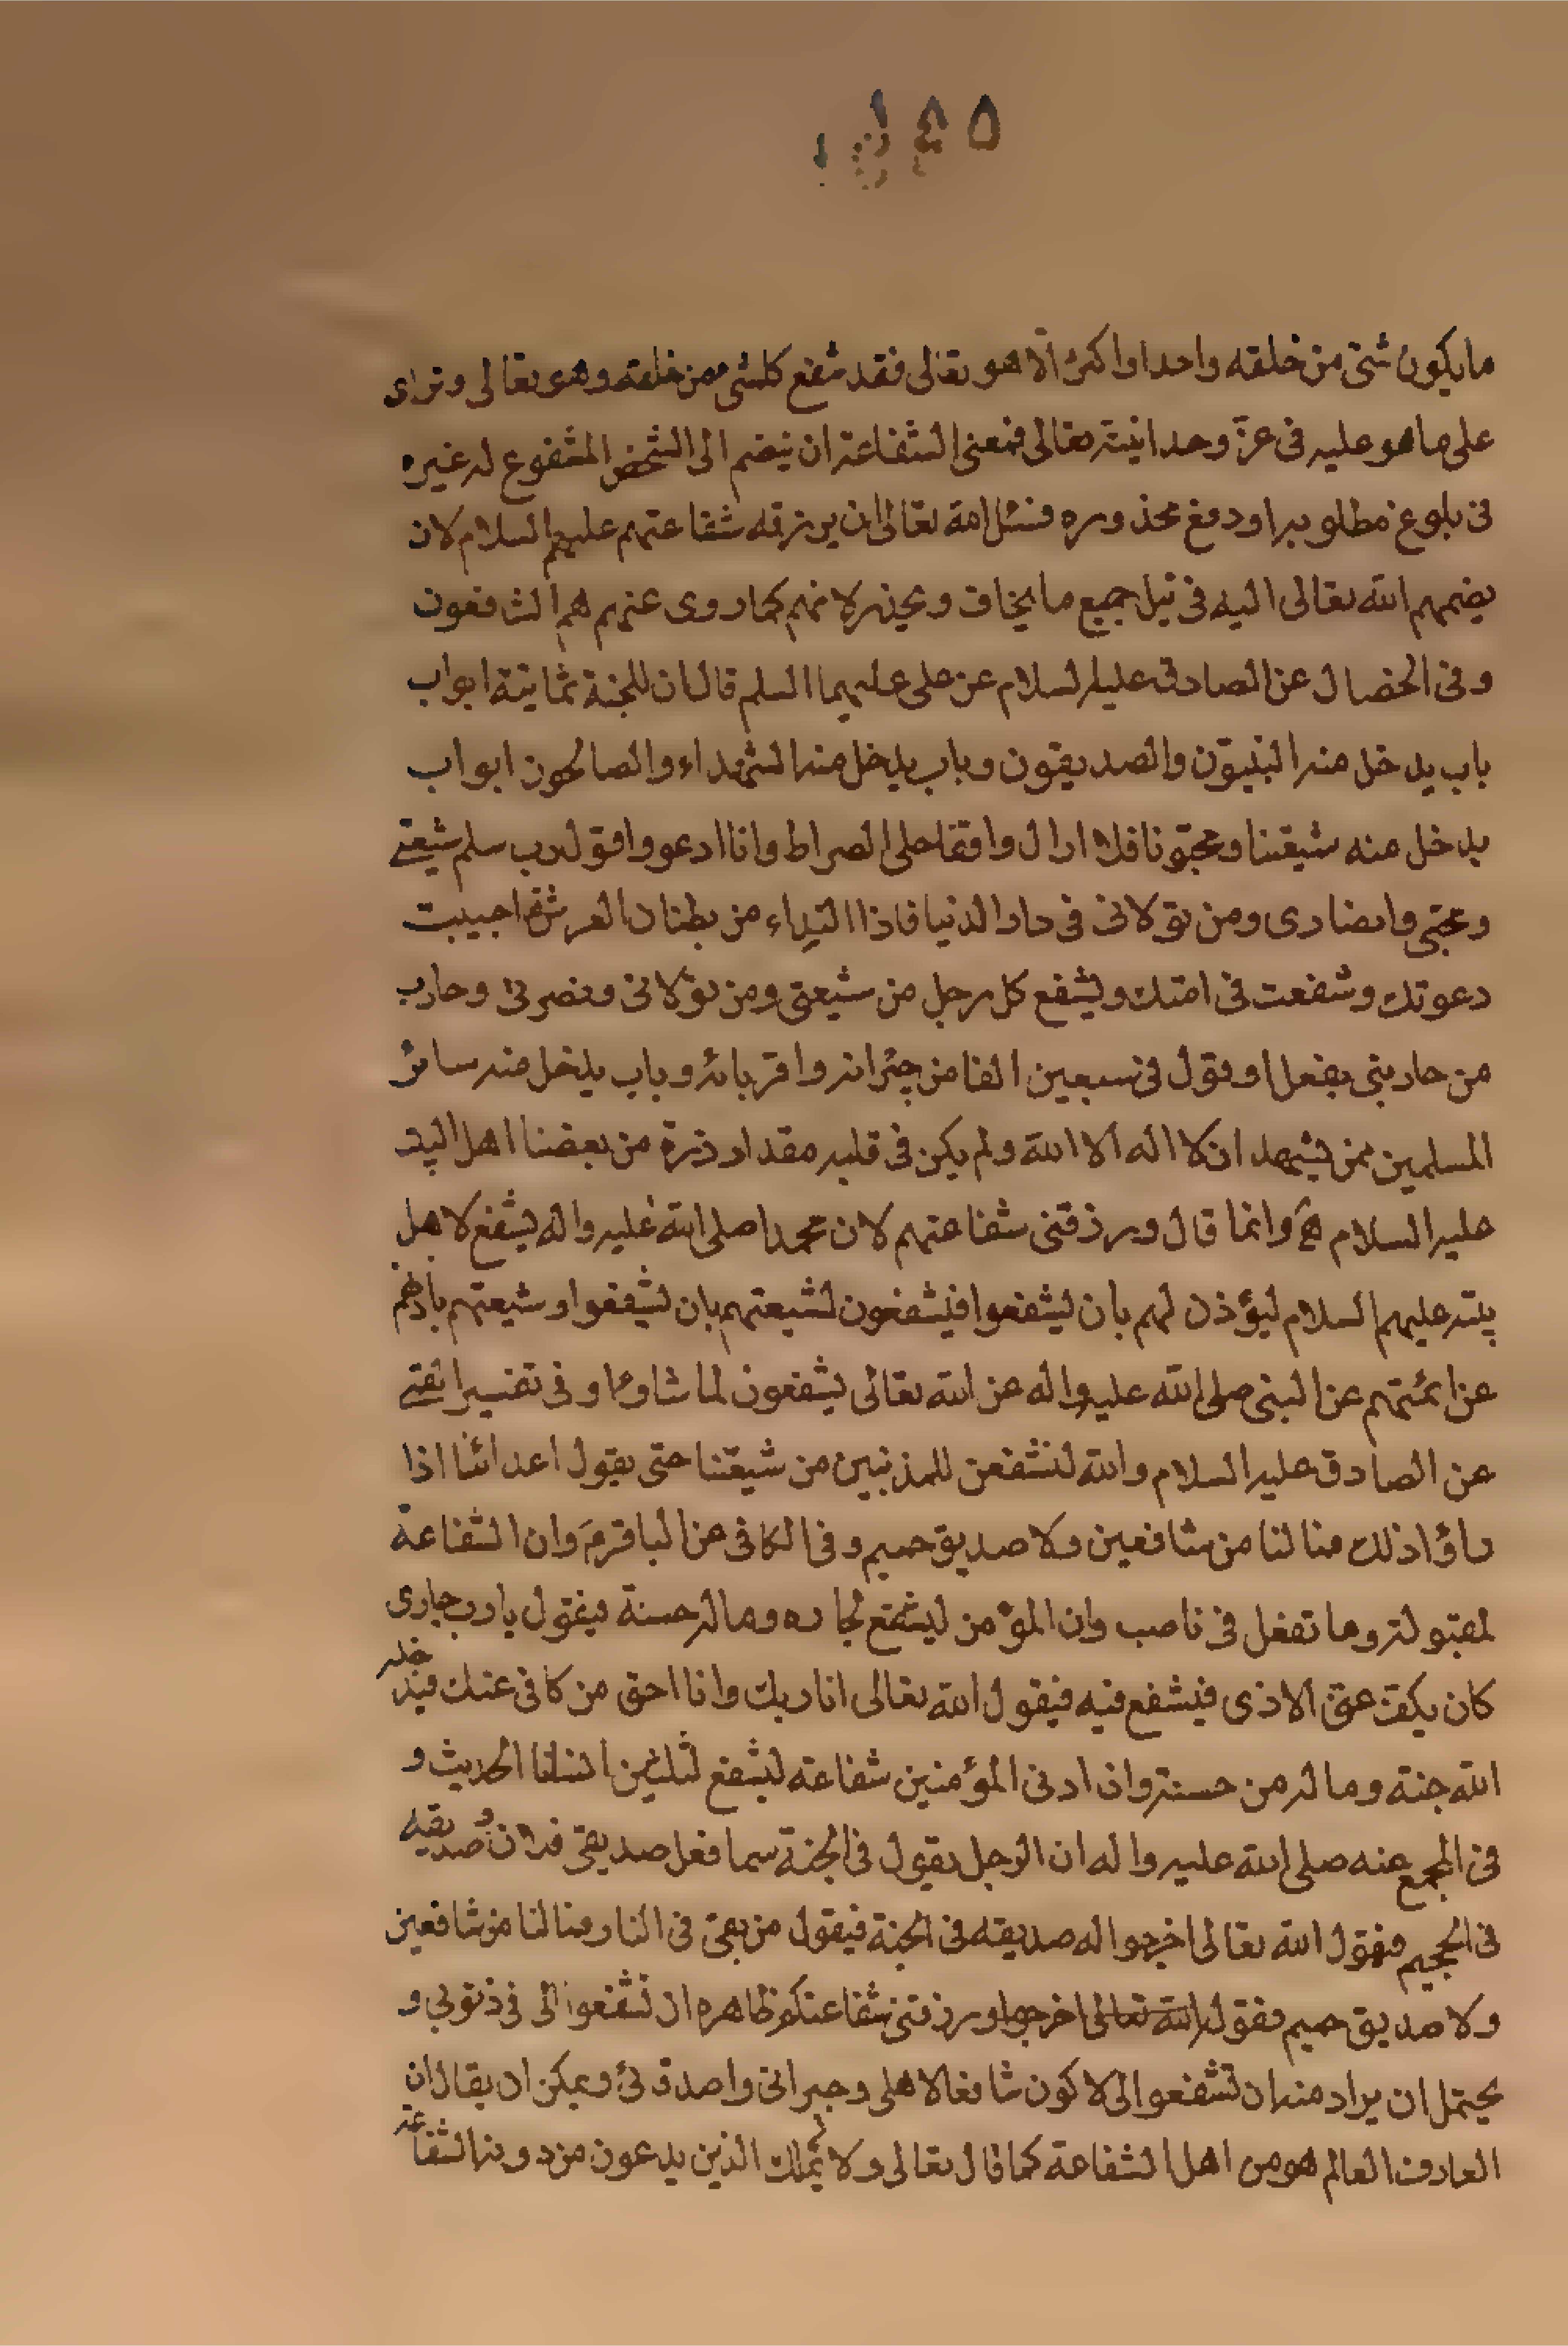 ما يكون شئ من خلقه واحدا واكثر الا هو تعالى فقد شفع كلشئ من خلقه وهو تعالى وتر اى
على ما هو عليه فى عزّ وحدانيته تعالى فمعنى الشفاعة ان ينضم الى الشخص المشفوع له غيره
فى بلوغ مطلوبه او دفع محذوره فنسئل الله تعالى ان يرزقه شفاعتهم عليهم السلام لان
يضمهم الله تعالى اليه فى نيل جميع ما يخاف ويحذره لانهم كما روى عنهم هم الشافعون
وفى الخصال عن الصادق عليه السلام عن على عليهما السلم قال ان للجنة ثمانية ابواب
باب يدخل منه النبيّون والصديقون وباب يدخل منه الشهداء والصالحون ابواب
يدخل منه شيعتنا ومحبّونا فلا ازال واقفا على الصراط وانا ادعو واقول رب سلم شيعتے
ومحبّى وانصارى ومن تولانى فى دار الدنيا فاذا النداء من بطنان العرش قد اجيبت
دعوتك وشفعت فى امتك ويشفع كل رجل من شيعتى ومن تولانى ونصرنى وحارب
من حاربنى بفعل او قول فى سبعين الفا من جيرانه واقربائه وباب يدخل منه سائر
المسلمين ممن يشهد ان لا اله الا الله ولم يكن فى قلبه مقدار ذرة من بغضنا اهل البيت
عليه السلام وانما قال ورزقنى شفاعتهم لان محمدا صلى الله عليه واله يشفع لاهل
بيته عليهم السلام ليؤذن لهم بان ليشفعوا فيشفعون لشيعتهم بان يشفعوا وشيعتهم باذنهم
عن ائمتهم عن النبى صلى الله عليه واله عن الله تعالى يشفعون لما شاؤا وفى تفسير القمے
عن الصادق عليه السلام والله لنشفعن للمذنبين من شيعتنا حتى يقول اعدائنا اذا
راؤا ذلك فما لنا من شافعين ولا صديق حميم وفى الكافى عن الباقر وان الشفاعة
لمقبولة وما تقبل فى ناصب وان المؤمن ليشفع لجاره وما له حسنة فيقول يا رب جارى
كان يكف عنى الاذى فيشفع فيه فيقول الله تعالى انا ربك وانا احق من كافى عنك فيدخله
الله جنة وما له من حسنة وان ادنى المؤمنين شفاعة ليشفع لثلثين انسانا الحديث و
فى المجمع عنه صلى الله عليه واله ان الرجل يقول فى الجنة ما فعل صديقى فلان وصديقه
فى الجحيم فيقول الله تعالى اخرجوا له صديقه فى الجنة فيقول من بقى فى النار فما لنا من شافعين
ولا صديق حميم فقوله الله تعالى اخرجوا ورزقنى شفاعتكم ظاهره ان تشفعوا لى فى ذنوبى و
يحتمل ان يراد منه ان تشفعوا لى لاكون شافعا لاهلى وجيرانى واصدقائى ويمكن ان يقال ان
العارف العالم هو من اهل الشفاعة كما قال تعالى ولا يملك الذين يدعون من دونه الشفاعة